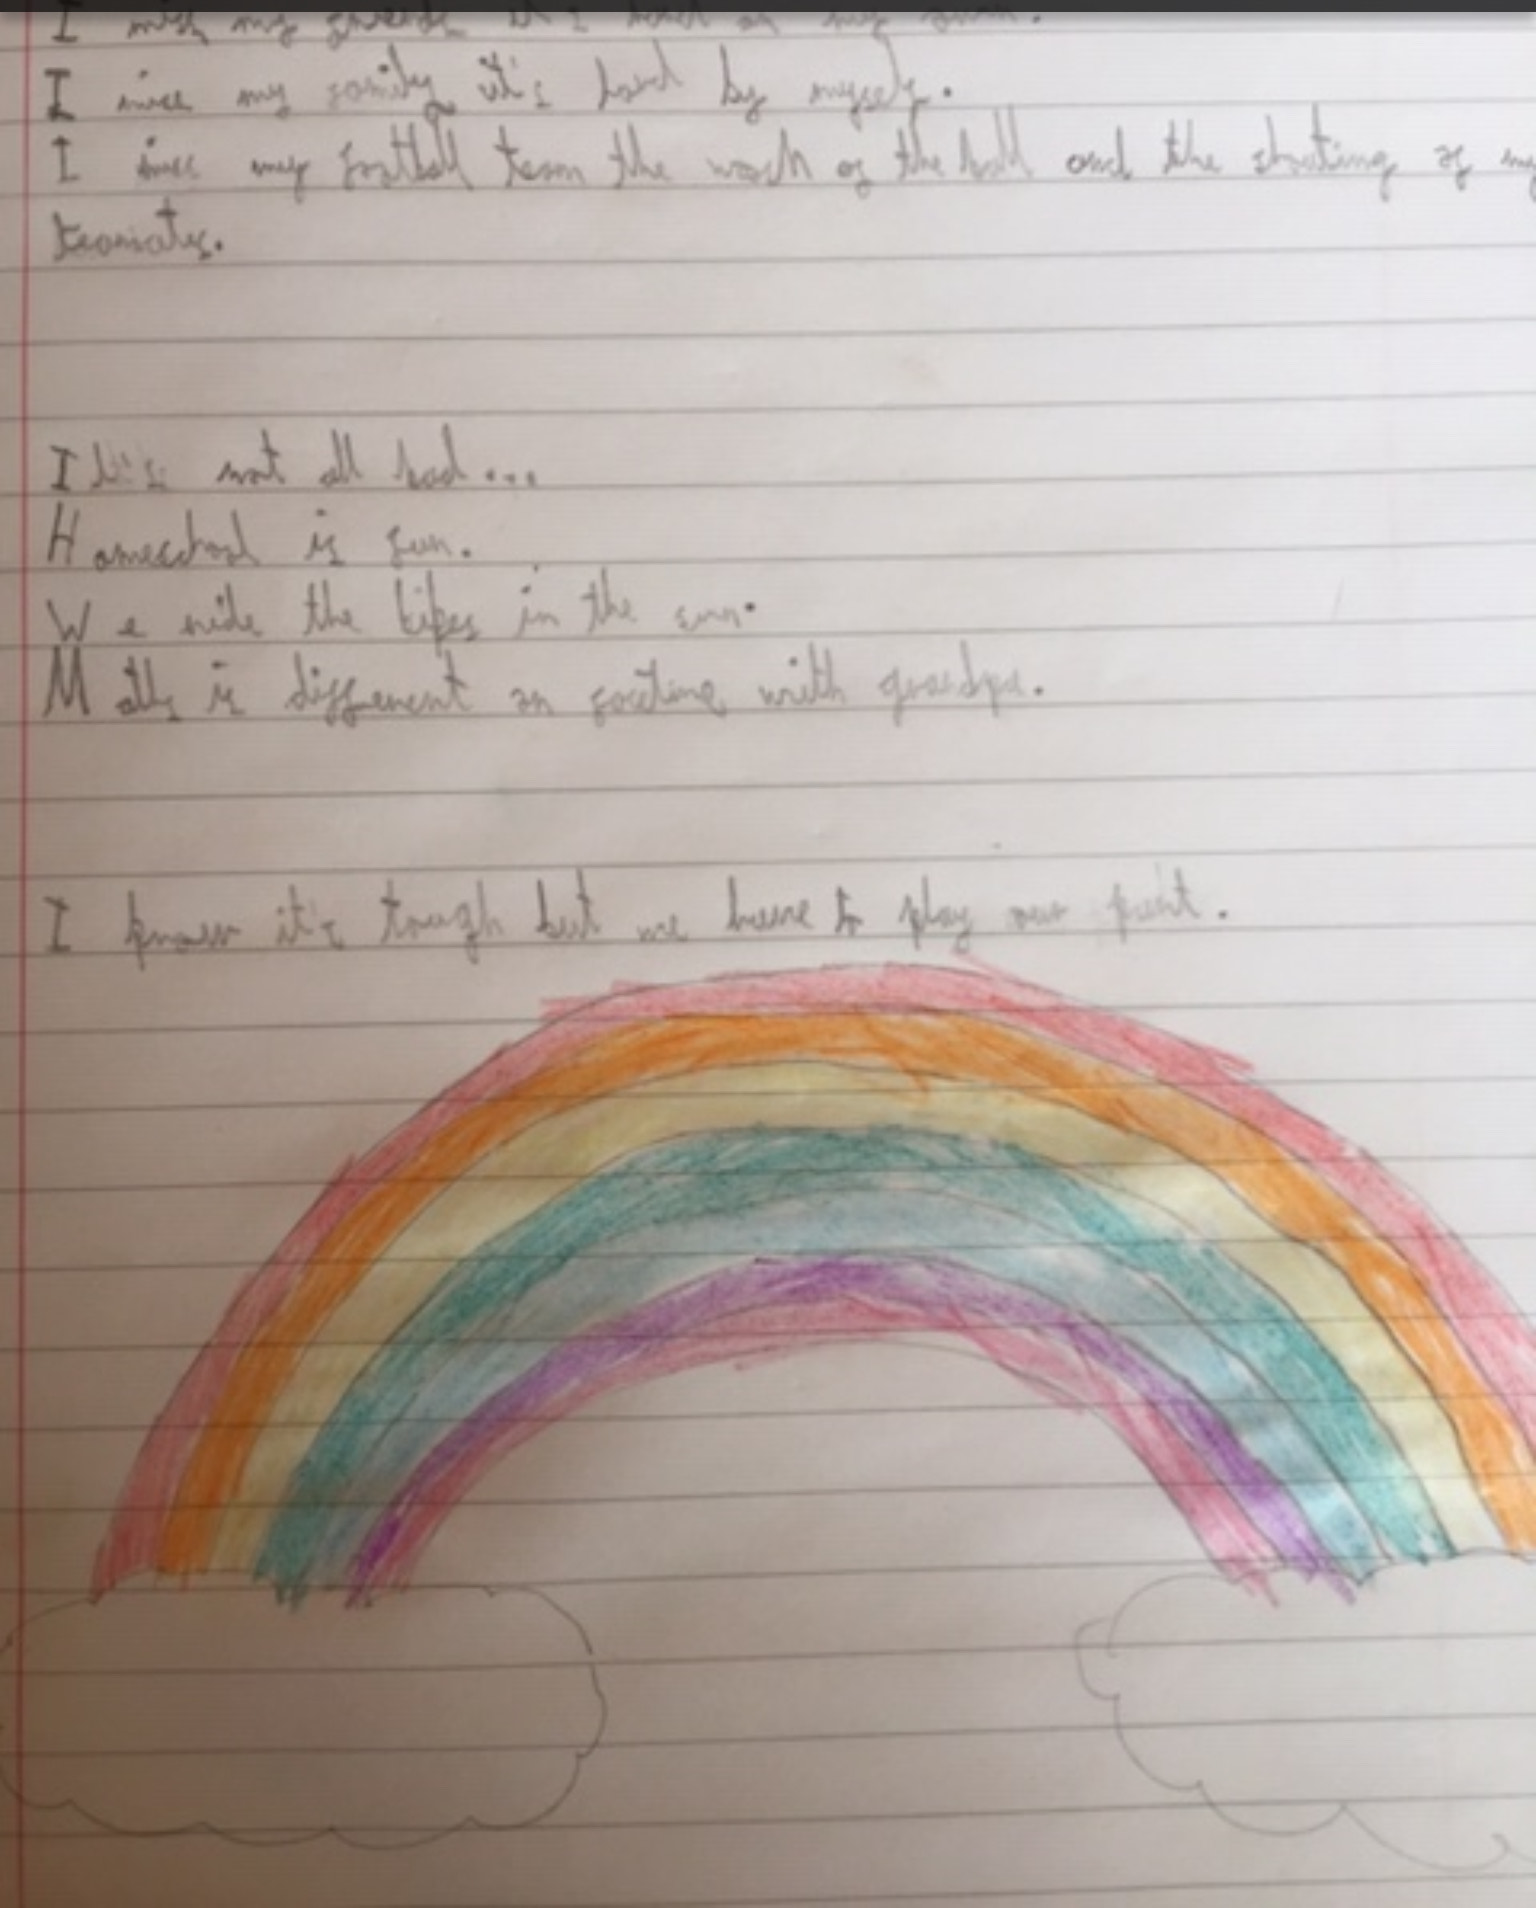 I miss my friends it's hard on my own.
I miss my family it's hard by myself.
I miss my football team the wosh of the ball and the shouting of my
teamates.
It's not all bad...
Homeschool is fun.
We ride the bikes in the sun.
Maths is different on facetime with grandpa.
I know it's tough but we have to play our part.